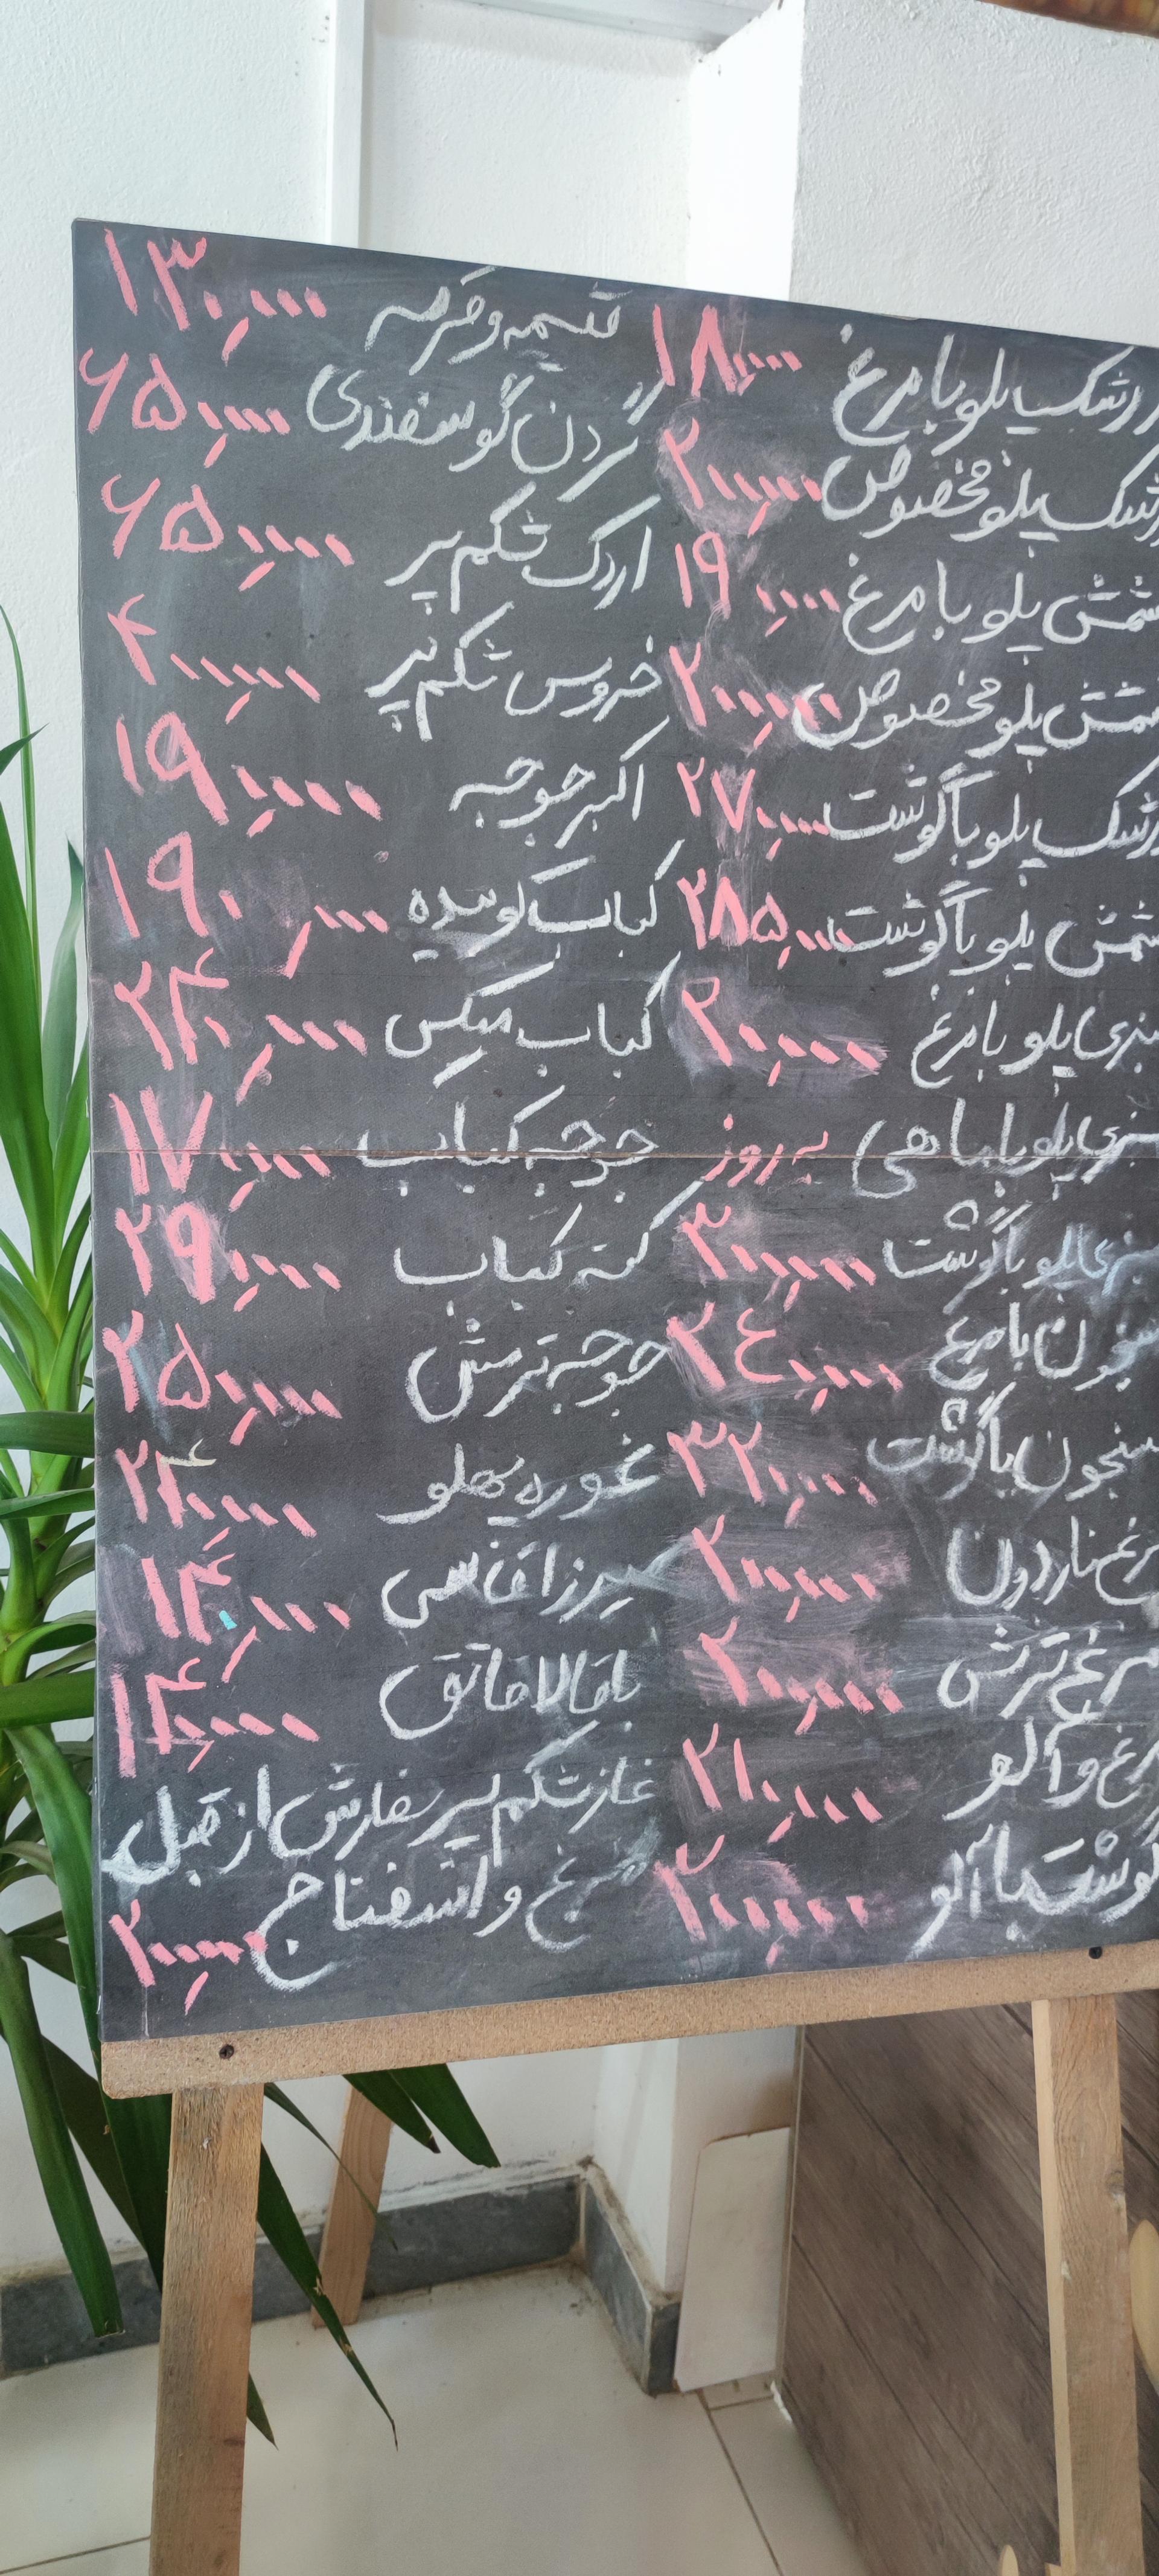 زرشک پلو با مرغ ۱۸۰,۰۰۰
زرشک پلو مخصوص ۲۰۰,۰۰۰
کشمش پلو با مرغ ۱۹۰,۰۰۰
کشمش پلو مخصوص ۲۰۰,۰۰۰
زرشک پلو با گوشت ۲۷۰,۰۰۰
کشمش پلو با گوشت ۲۸۵,۰۰۰
سبزی پلو با مرغ ۲۰۰,۰۰۰
سبزی پلو با ماهی به روز
سبزی پلو با گوشت ۳۰۰,۰۰۰
فسنجون با مرغ ۲۴۰,۰۰۰
فسنجون با گوشت ۳۲۰,۰۰۰
مرغ ناردون ۲۰۰,۰۰۰
مرغ ترش ۲۰۰,۰۰۰
مرغ و آلو ۲۱۰,۰۰۰
گوشت با آلو ۳۰۰,۰۰۰
قیمه و قرمه ۱۳۰,۰۰۰
گردن گوسفندی ۶۵۰,۰۰۰
اردک شکم پر ۶۵۰,۰۰۰
خروس شکم پر ۴۰۰,۰۰۰
اکبر جوجه ۱۹۰,۰۰۰
کباب کوبیده ۱۹۰,۰۰۰
کباب میکس ۲۴۰,۰۰۰
جوجه کباب ۱۷۰,۰۰۰
کته کباب ۲۹۰,۰۰۰
جوجه ترش ۲۵۰,۰۰۰
غوره پهلو ۲۴۰,۰۰۰
میرزا قاسمی ۱۴۰,۰۰۰
باقالا قاتق ۱۴۰,۰۰۰
غاز شکم پر سفارش از قبل
مرغ و اسفناج ۲۰۰,۰۰۰